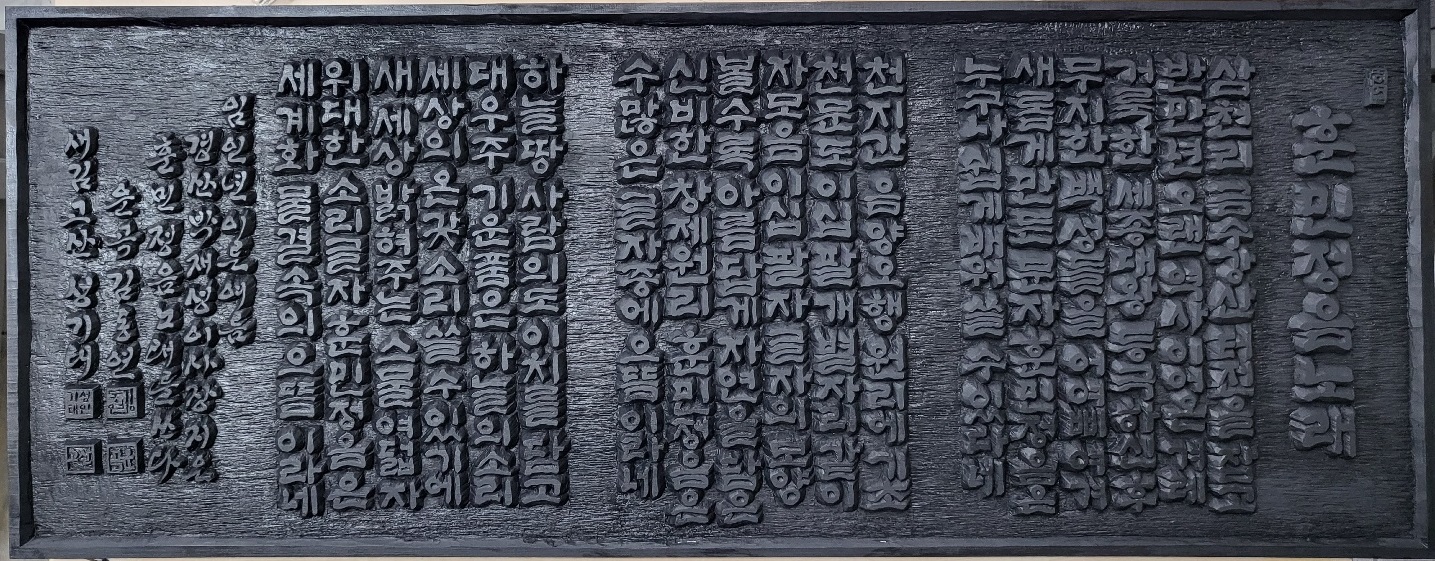 훈민정음노래
삼천리 금수강산 터전을
반만년 오랜역사 이어온겨레
거룩한 세종대왕 등극하신후
무지한 백성들을 어여삐여겨
새롭게 만든문자 훈민정음은
누구나 쉽게배워 쓸수있다네
천지간 음양오행 원리에기초
천문도 이십팔개 별자리같이
자모음 이십팔자 글자의모양
볼수록 아름답게 자연을닮은
신비한 창제원리 훈민정음은
수많은 글자중에 으뜸이라네
하늘땅 사람의도 이치를담고
대우주 기운품은 하늘의소리
세상의 온갖소리 쓸수있기에
새세상 밝혀주는 스물여덟자
위대한 소리글자 훈민정음은
세계화 물결속의 으뜸이라네
임인년 이른여름
경산박재성이사장지음
훈민정음노래를쓰다
운곡김동연
새김고산 성기태
성기태인